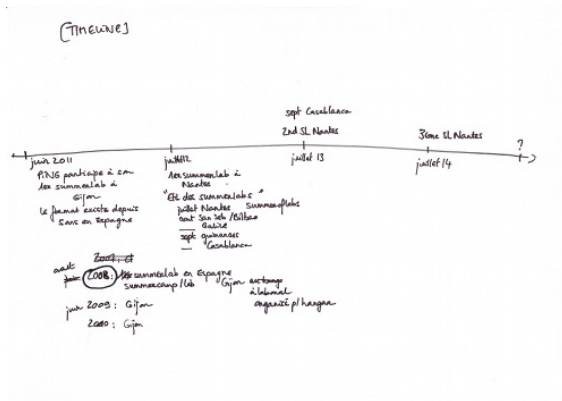 [TIMELINE]
sept Casablanca
2nd SL Nantes
3ème SL Nantes
?
juin 2011
juillet 12
juillet 13
juillet 14
PiNG participe à son
1er summerlab à
Gijon
Le format existe depuis
5ans en Espagne
1er summerlab à
Nantes
"Eté des summerlabs"
juillet Nantes Summerlabs
aout San Seb / Bilbao
sept guimaraes
Casablanca
aout
2008: 1er summerlab en Espagne
summercamp / lab Gijon
à laboral
organisé p/ hangar
juin 2009 : Gijon
2010 : Gijon